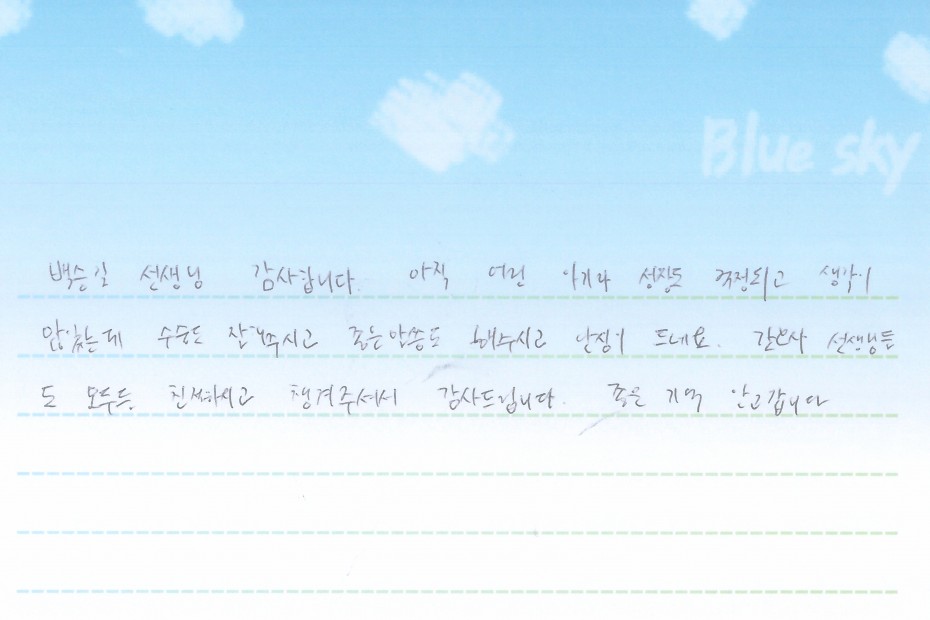 Blue sky
백승길 선생님 감사합니다. 아직 어린 아기라 성장도 걱정되고 생각이
많았는데 수술도 잘해주시고 좋은말씀도 해주시고 안정이 드네요. 간호사 선생님들
도 모두들 친절하시고 챙겨주셔서 감사드립니다. 좋은 기억 안고갑니다